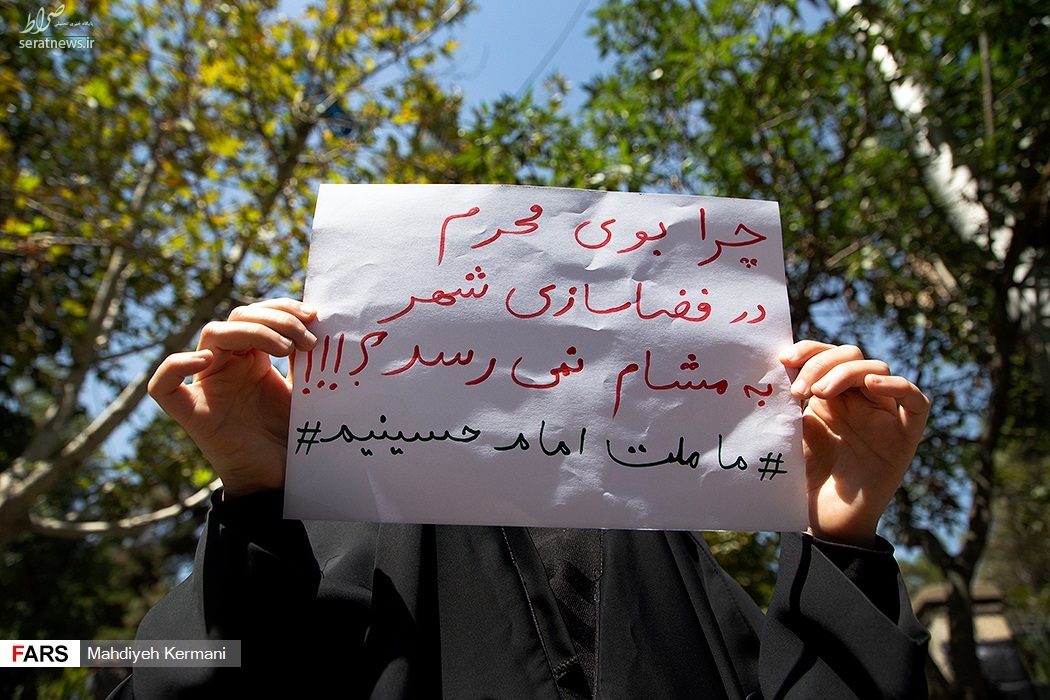 صراط
seratnews.ir
چرا بوی محرم
در فضاسازی شهر
به مشام نمی رسد ؟!!!
#ما ملت امام حسینیم#
FARS
Mahdiyeh Kermani